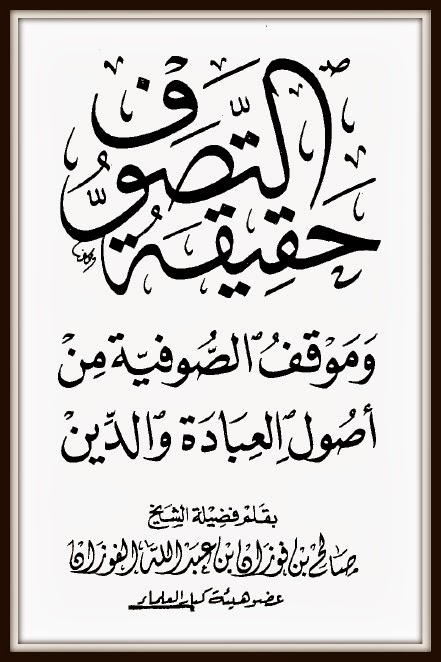 حَقِيقَة التَّصَوُّف
وَمَوْقفُ الصُّوفيَّة مِنْ
أصُول العِبَادَة وَالدِّين
بقَلم فضِيلة الشيَخ
صَالح بن فوزان ابن عبَد اللّه الفوزان
عضو هيئة كبار العلماء